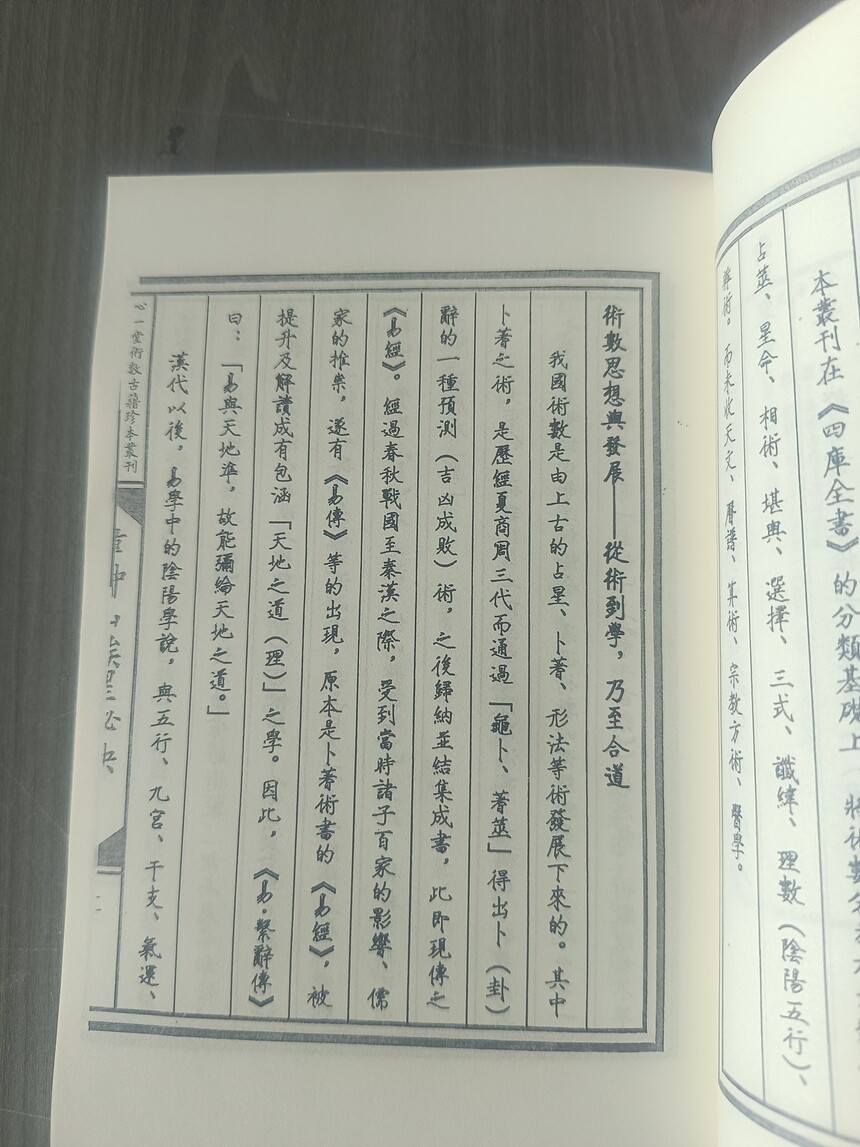 本叢刊在《四庫全書》的分類基礎上
占筮、星命、相術、堪輿、選擇、三式、讖緯、理數（陰陽五行）、
術。而未收天文、曆譜、算術、宗教方術、醫學。
術數思想與發展——從術到學，乃至合道
我國術數是由上古的占星、卜蓍、形法等術發展下來的。其中
卜蓍之術，是歷經夏商周三代而通過「龜卜、蓍筮」得出卜（卦）
辭的一種預測（吉凶成敗）術，之後歸納並結集成書，此即現傳之
《易經》。經過春秋戰國至秦漢之際，受到當時諸子百家的影響、儒
家的推崇，遂有《易傳》等的出現，原本是卜蓍術書的《易經》，被
提升及解讀成有包涵「天地之道（理）」之學。因此，《易·繫辭傳》
曰：「易與天地準，故能彌綸天地之道。」
漢代以後，易學中的陰陽學說，與五行、九宮、干支、氣運、
心一堂術數古籍珍本叢刊
二